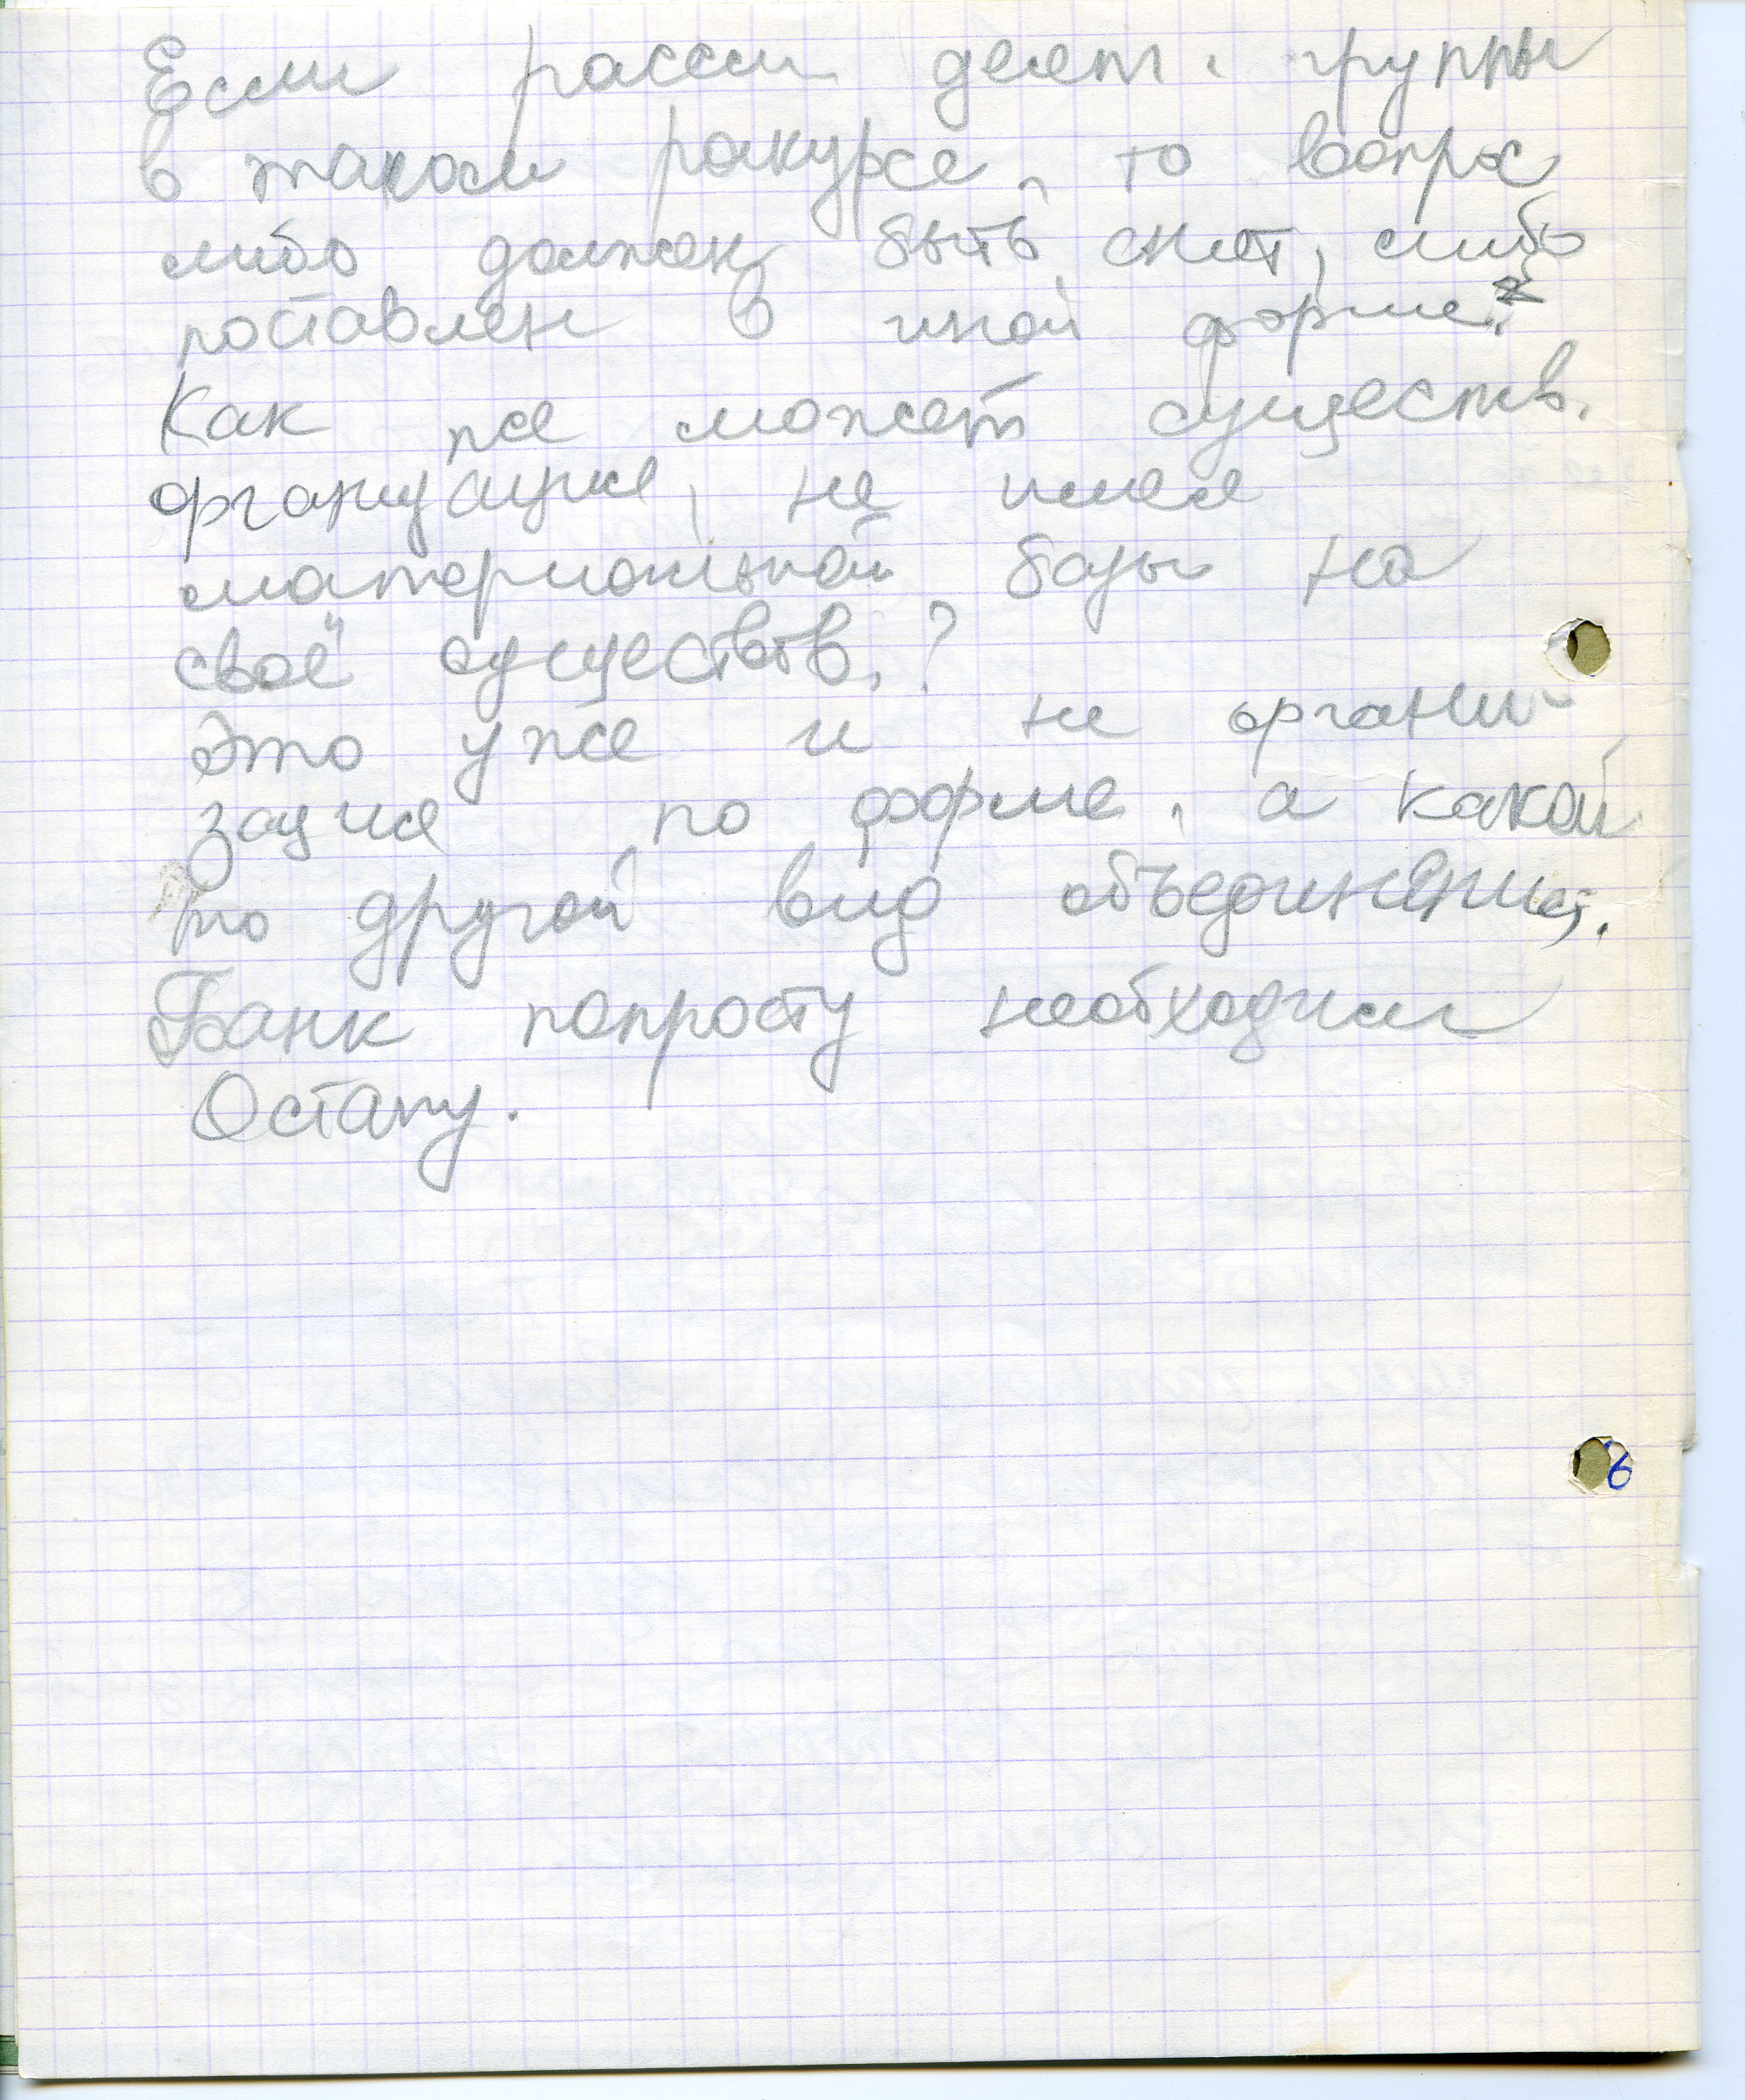 Если рассм деят. группы
в таком ракурсе, то вопрос
либо должен быть снят, либо
поставлен в иной форме.
Как же может существ.
организация, не имея
материальной базы на
своё существов.?
Это уже и не органи-
зация по форме, а какой
то другой вид объединения.
Банк попросту необходим
Остапу.
6